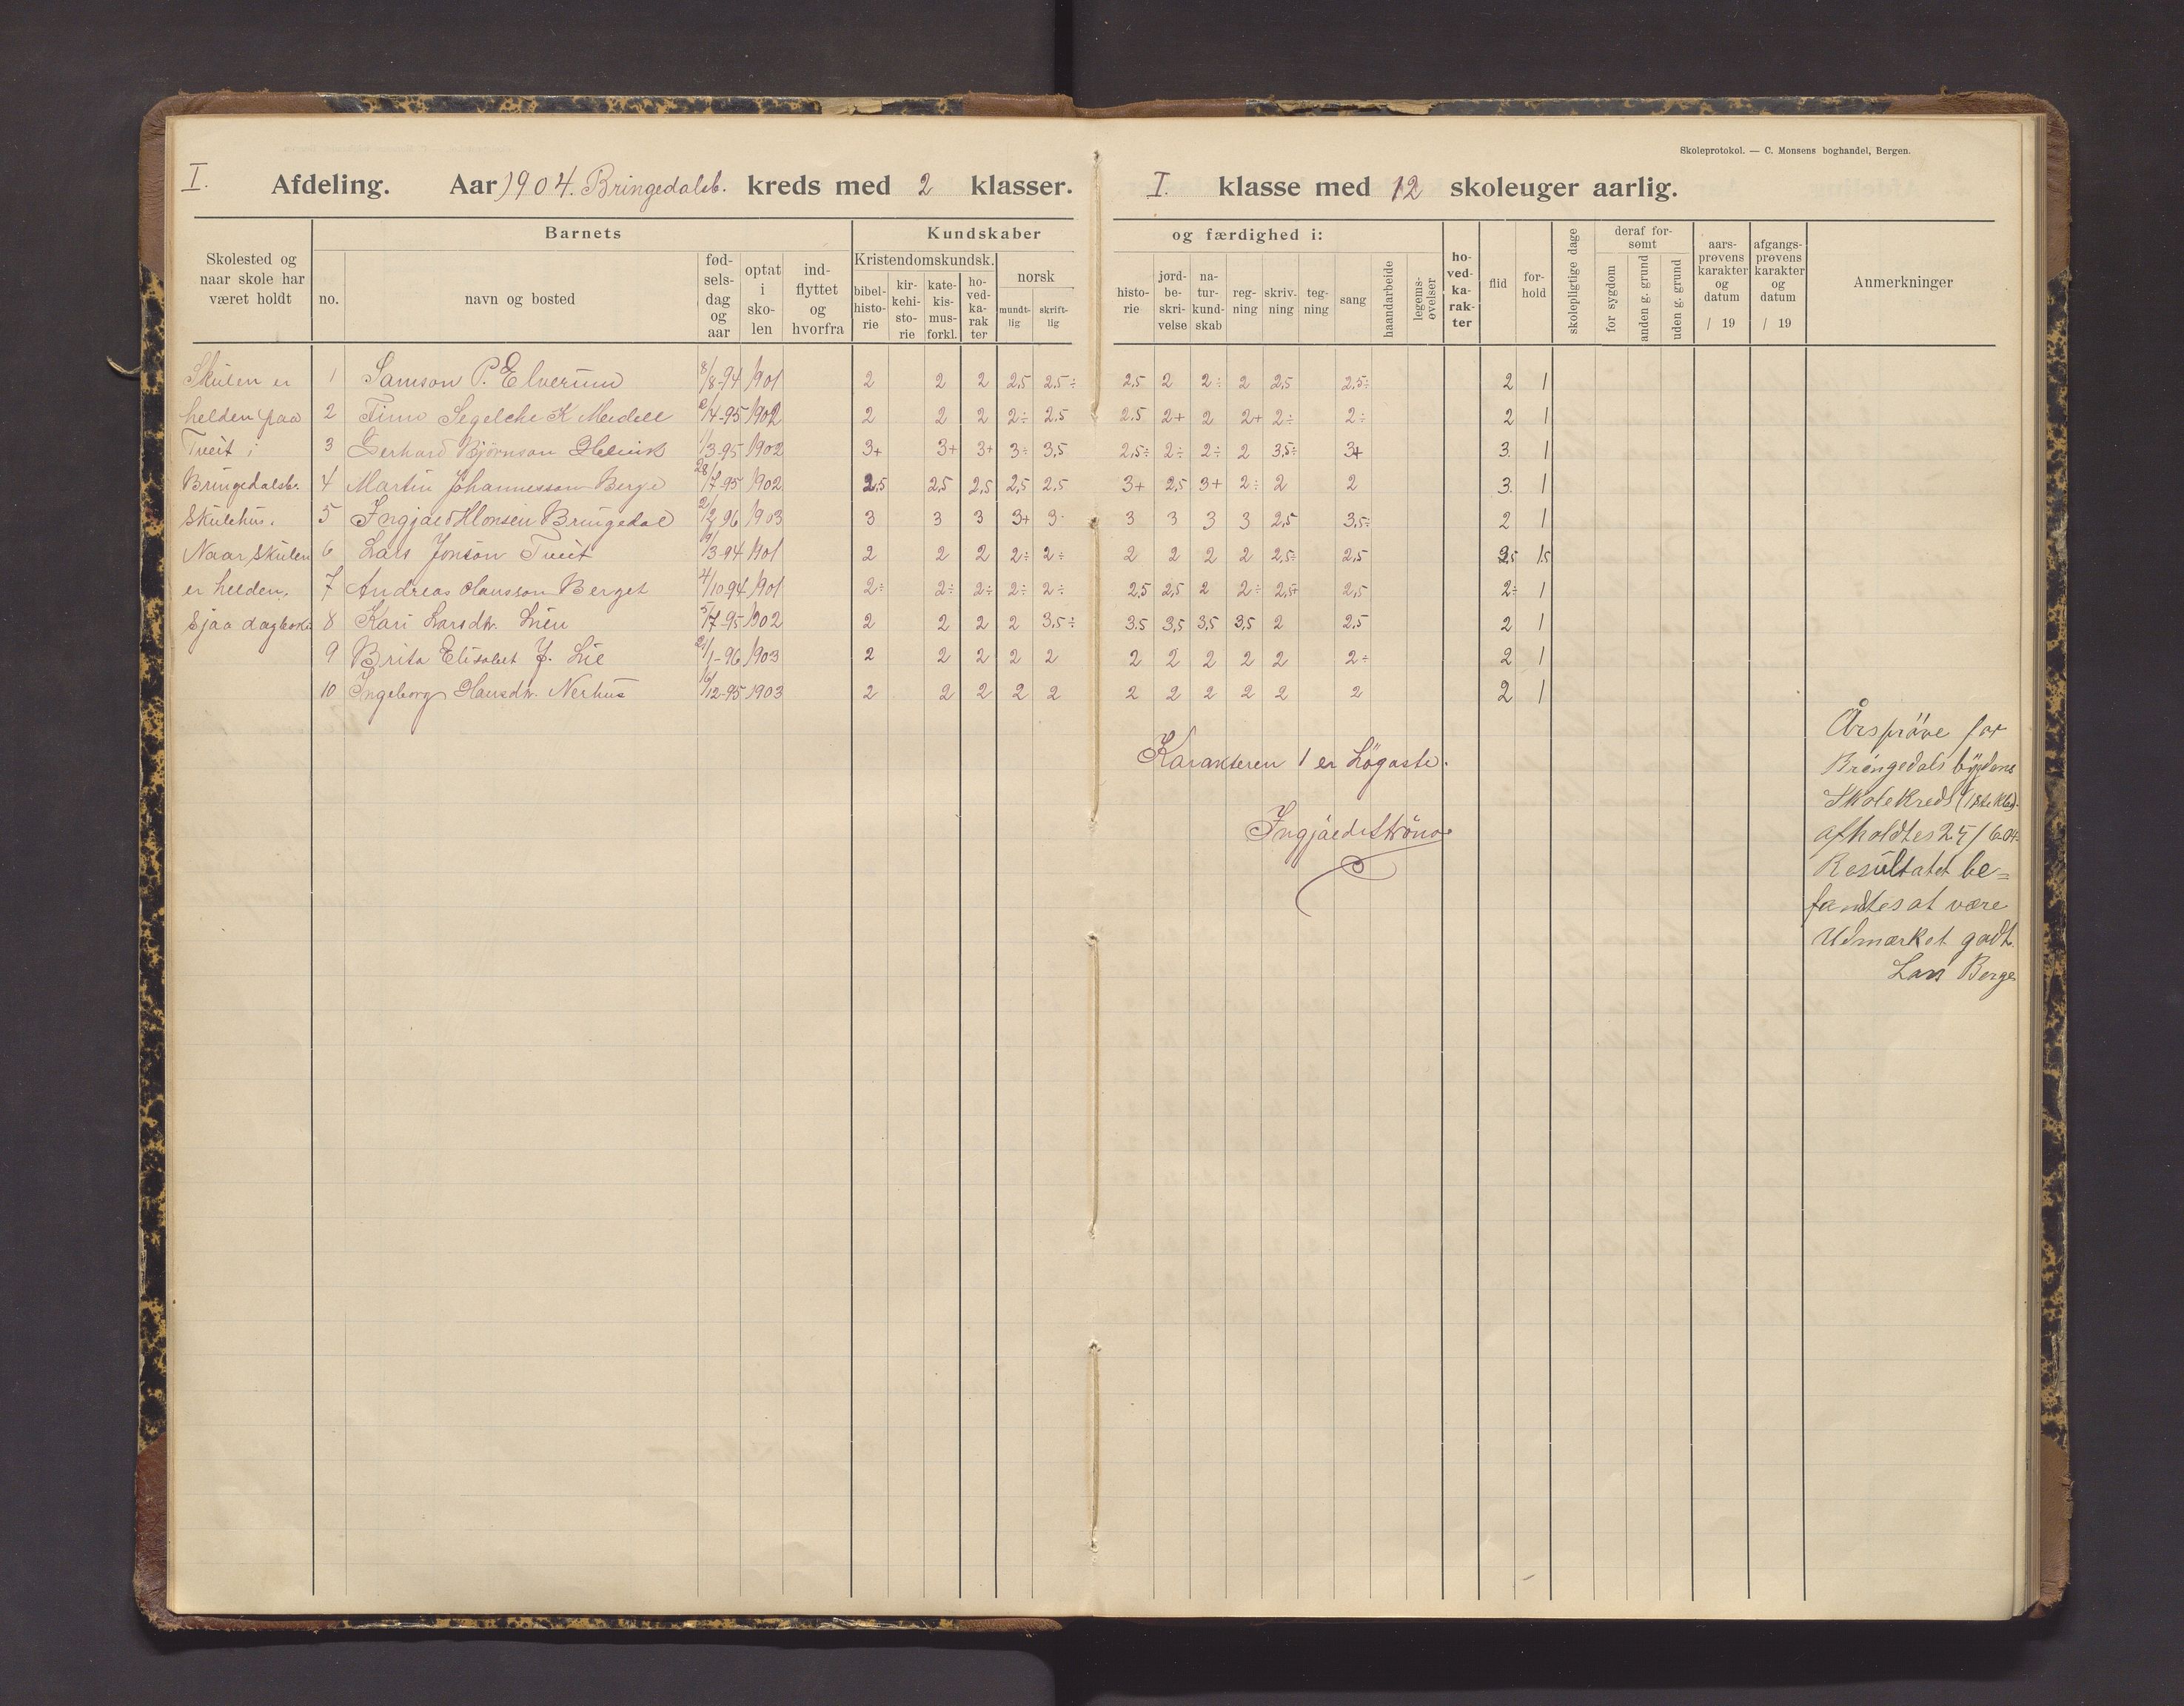 Skoleprotokol. — C. Monsens boghandel, Bergen.
I. Afdeling. Aar 1904. Bringedalsb. kreds med 2 klasser. I. klasse med 12 skoleuger aarlig.
Skolested og naar skole har været holdt
Barnets
no.
navn og bosted
fød-sels-dag og aar
optat i sko-len
ind-flyttet og hvorfra
Kundskaber
Kristendomskundsk.
bibel-histo-rie
kir-kehi-sto-rie
kate-kis-mus-forkl.
ho-ved-ka-rak ter
norsk
mundt-lig
skrift-lig
og færdighed i:
histo-rie
jord-be-skri-velse
na-tur-kund-skab
reg-ning
skriv-ning
teg-ning
sang
haandarbeide
legems-øvelser
ho-ved-ka-rak-ter
flid
for-hold
skolepligtige dage
deraf for-sømt
for sygdom
anden g. grund
uden g. grund
aars-prøvens karakter og datum / 19
afgangs-prøvens karakter og datum / 19
Anmerkninger
Skulen er 1 Samson P. Elverum 8/8-94 1901 2 2 2 2,5 2,5÷ 2,5 2 2÷ 2 2,5 2,5÷ 2 1
helden paa 2 Timo Segelcke K Meidell /4-95 1902 2 2 2 2÷ 2,5 2.5 2+ 2 2+ 2÷ 2÷ 2 1
Tveit i 3 Gerhard Björnson Helvik 1/3-95 1902 3+ 3+ 3+ 3÷ 3,5 2,5÷ 2÷ 2÷ 2 3,5÷ 3+ 3. 1
Bringedalsb. 4 Martin Johannesson Berge 28/7-95 1902 2,5 2,5 2,5 2,5 2,5 3+ 2,5 3+ 2÷ 2 2 3. 1
Skulehus. 5 Ingjald Monsen Bringedal 96 1903 3 3 3 3+ 3 3 3 3 3 2,5 3,5÷ 2 1
Naar Skulen 6 Lars Jonson Tveit /3-94 1901 2 2 2 2÷ 2÷ 2 2 2 2 2,5÷ 2,5 1.5
er helden, 7 Andreas Hansson Berget 4/10-94 1901 2÷ 2÷ 2÷ 2÷ 2÷ 2,5 2,5 2 2÷ 2,5+ 2,5 2÷ 1
sjaa dagbok 8 Kari Larsdtr. Lien 5/7-95 1902 2 2 2 2 3,5÷ 3.5 3,5 3,5 3,5 2 2,5 2 1
9 Brita Elisabet J. Lie /1-96 1903 2 2 2 2 2 2 2 2 2 2 2÷ 2 1
10 Ingeborg Hansdtr. Nerhus /12-95 1903 2 2 2 2 2 2 2 2 2 2 2 2 1
Karakteren 1 er högaste.
Ingjald Ströno
Årspröve for
Bringedals bygdens
Skolekreds (1ste Kl)
afholdtes 25/6 04
Resultatet be=
fandtes at være
Udmærket godt.
Lars Berge